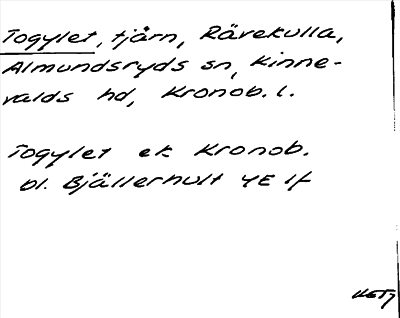 Togylet, tjärn, Rävekulla,
Almundsryds sn, Kinne-
valds hd, Kronob. l.
Togylet ek Kronob.
bl. Bjällerhult 4E 1f